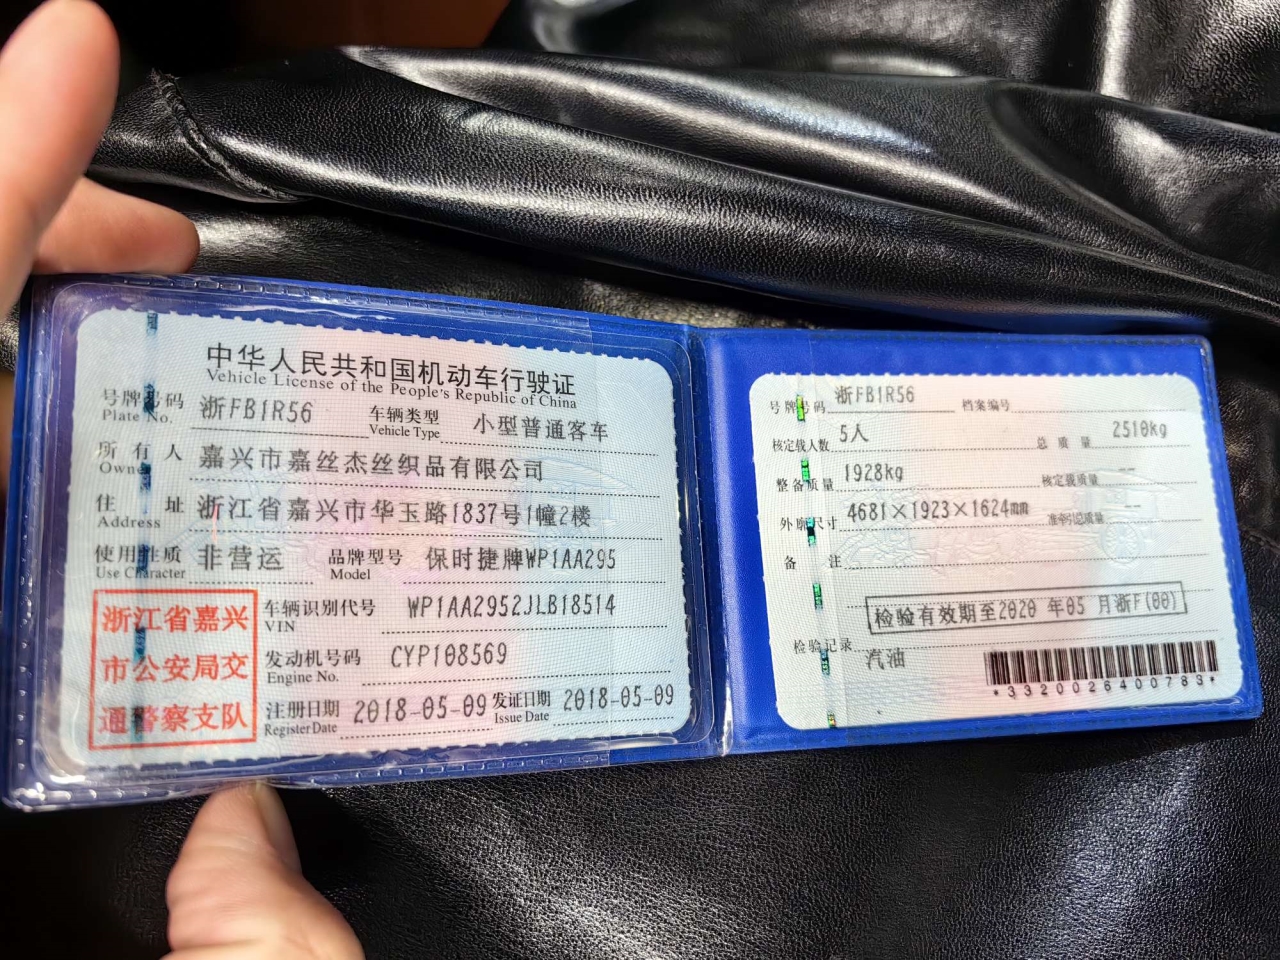 中华人民共和国机动车行驶证
Vehicle License of the People's Republic of China
号牌号码 浙FB1R56 车辆类型 小型普通客车
Plate No. Vehicle Type
所有人 嘉兴市嘉丝杰丝织品有限公司
Owner
住址 浙江省嘉兴市华玉路1837号1幢2楼
Address
使用性质 非营运 品牌型号 保时捷牌WP1AA295
Use Character Model
浙江省嘉兴
市公安局交
通警察支队
车辆识别代号 WP1AA2952JLB18514
VIN
发动机号码 CYP108569
Engine No.
注册日期 2018-05-09 发证日期 2018-05-09
Register Date Issue Date
号牌号码 浙FB1R56 档案编号
核定载人数 5人 总质量 2510kg
整备质量 1928kg 核定载质量 --
外廓尺寸 4681×1923×1624mm 准牵引总质量 --
备注
检验有效期至2020年05月浙F(00)
检验记录
汽油
*3320026400783*